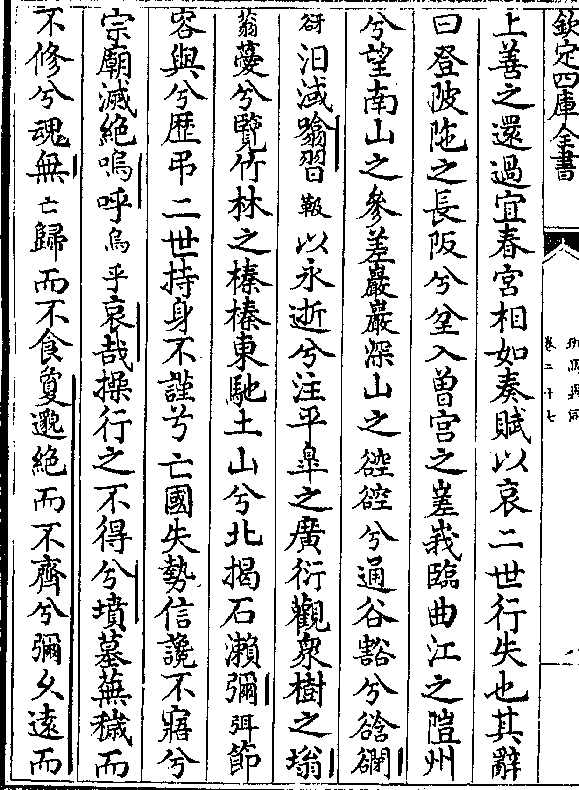 欽定四庫全書
卷二十七
上善之還過宜春宮相如奏賦以哀二世行失也其辭
曰登陂陁之長阪兮坌入曾宮之嵳峩臨曲江之隑州
兮望南山之參差巖巖深山之谾谾兮通谷豁兮谽𧯆
谺汩淢噏習靸以永逝兮注平臯之廣衍觀衆樹之塕
蓊薆兮覽竹林之榛榛東馳土山兮北揭石瀨彌弭節
容與兮歴弔二世持身不謹兮亡國失勢信讒不寤兮
宗廟滅絶嗚呼烏乎哀哉操行之不得兮墳墓蕪穢而
不修兮魂無亡歸而不食敻邈絶而不齊兮彌久逺而